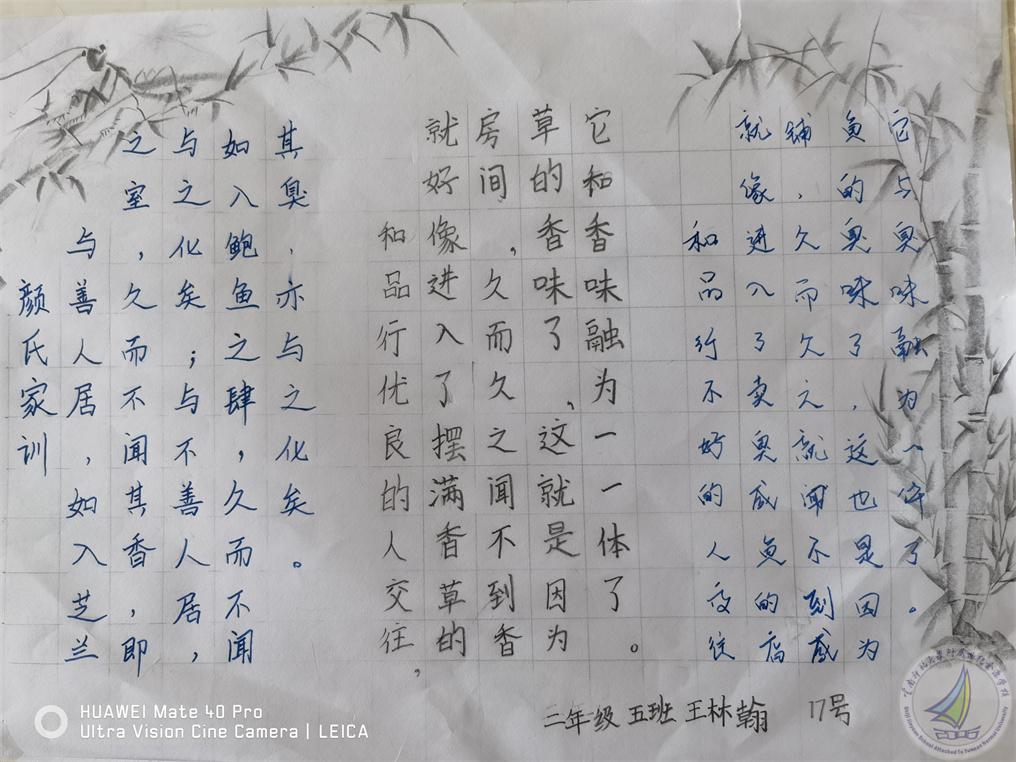 颜氏家训
与善人居，如入芝兰
之室，久而不闻其香，即
与之化矣；与不善人居，
如入鲍鱼之肆，久而不闻
其臭，亦与之化矣。
和品行优良的人交往，
就好像进入了摆满香草的
房间，久而久之闻不到香
草的香味了，这就是因为
它和香味融为一一体了。
和品行不好的人交往
就像进入了卖臭咸鱼的店
铺，久而久之就闻不到咸
鱼的臭味了，这也是因为
它与臭味融为一体了。
二年级 五班 王林翰 17号
HUAWEI Mate 40 Pro
Ultra Vision Cine Camera | LEICA